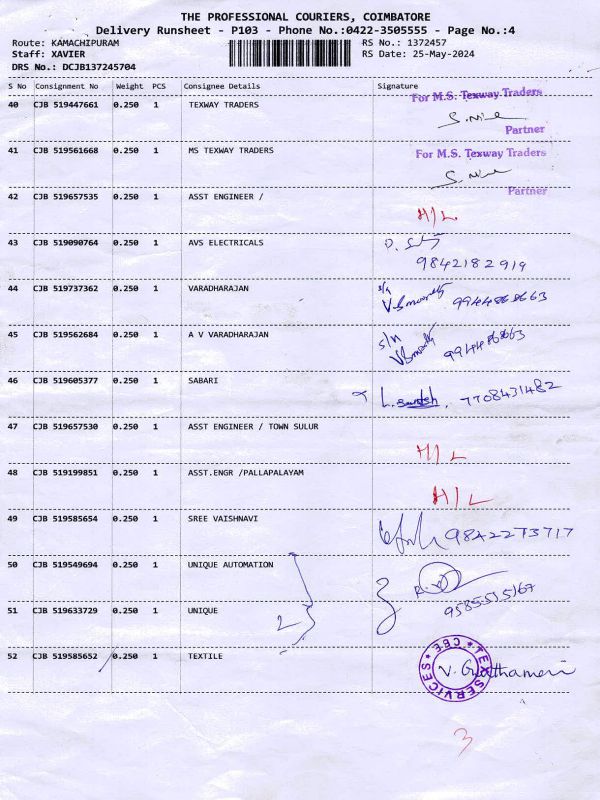 THE PROFESSIONAL COURIERS, COIMBATORE
Delivery Runsheet - P103 - Phone No.:0422-3505555 - Page No.:4
Route: KAMACHIPURAM RS No.: 1372457
Staff: XAVIER RS Date: 25-May-2024
DRS No.: DCJB137245704
S No Consignment No Weight PCS Consignee Details Signature
40 CJB 519447661 0.250 1 TEXWAY TRADERS For M.S. Texway Traders
Partner
41 CJB 519561668 0.250 1 MS TEXWAY TRADERS For M.S. Texway Traders
Partner
42 CJB 519657535 0.250 1 ASST ENGINEER / H/L
43 CJB 519090764 0.250 1 AVS ELECTRICALS
9842182919
44 CJB 519737362 0.250 1 VARADHARAJAN 9944868663
45 CJB 519562684 0.250 1 A V VARADHARAJAN 9944868663
46 CJB 519605377 0.250 1 SABARI 7708431482
47 CJB 519657530 0.250 1 ASST ENGINEER / TOWN SULUR H/L
48 CJB 519199851 0.250 1 ASST.ENGR /PALLAPALAYAM H/L
49 CJB 519585654 0.250 1 SREE VAISHNAVI 9842273717
50 CJB 519549694 0.250 1 UNIQUE AUTOMATION
51 CJB 519633729 0.250 1 UNIQUE 2 9585515167
52 CJB 519585652 0.250 1 TEXTILE TEX SERVICES CBE
3